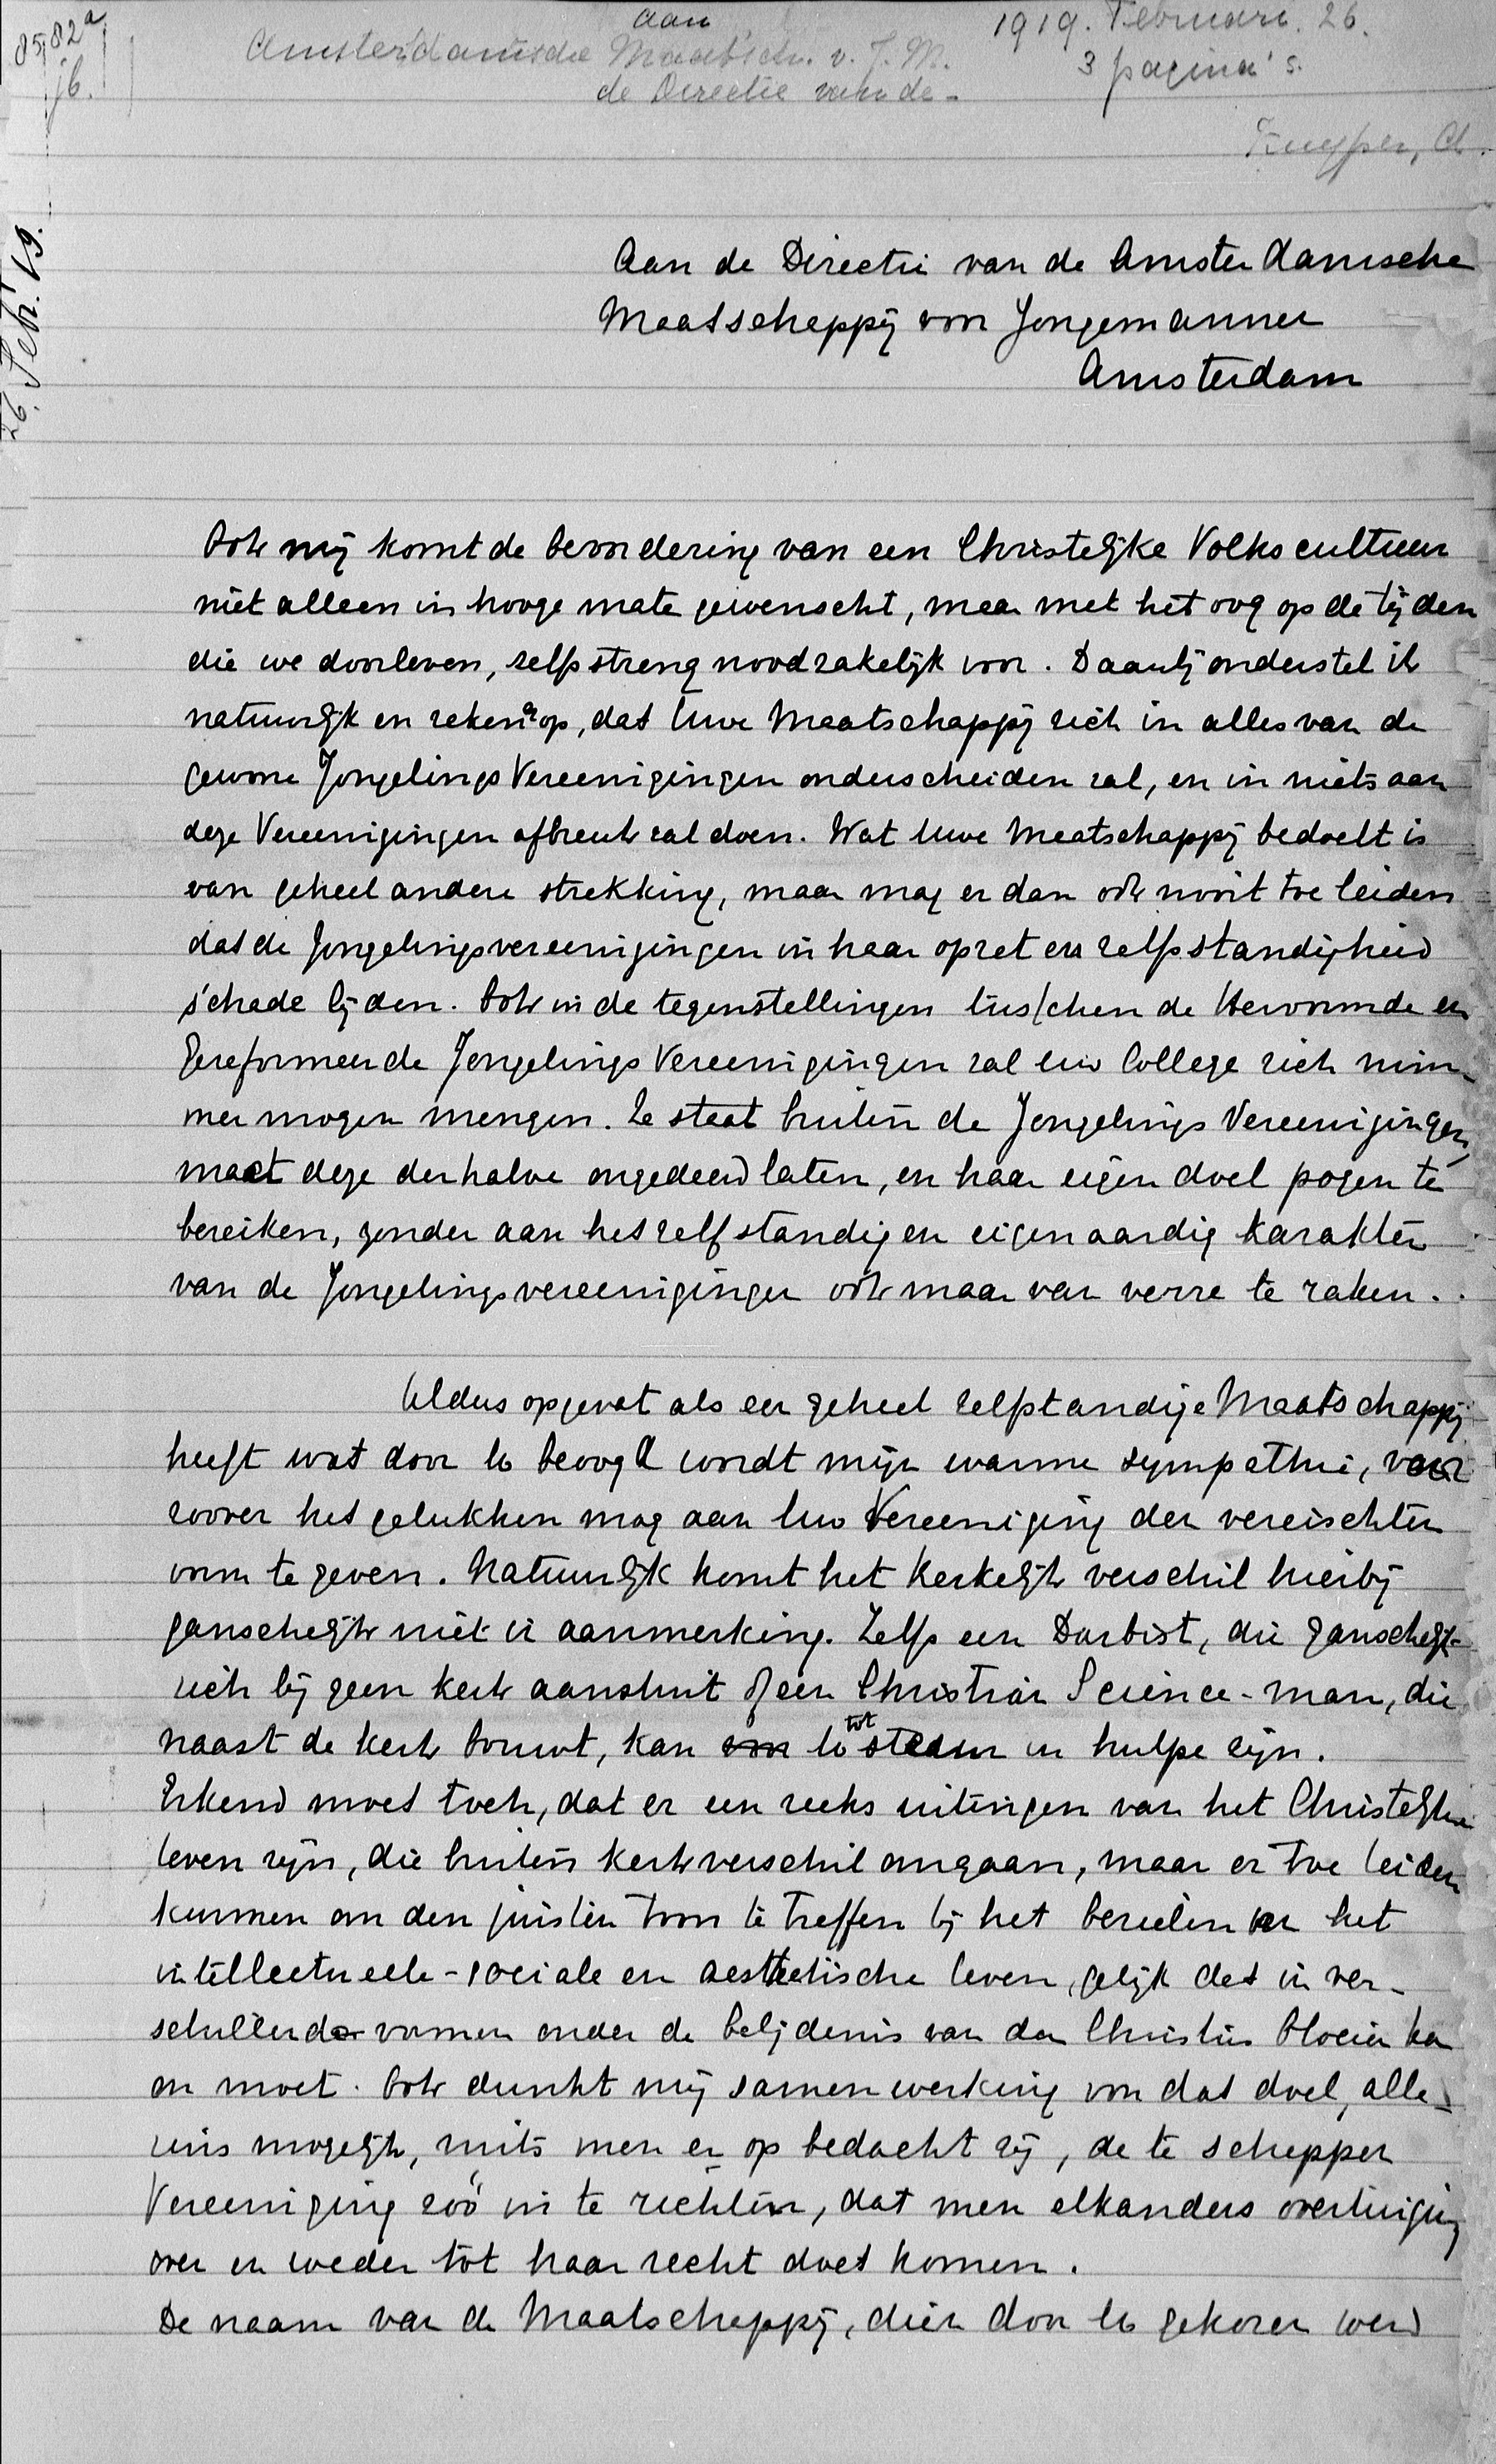 85,82a
jb.
26. Febr. 19.
aan
Amsterdamsche Maatsch. v. J. M.
de Directie van de -
1919. Februari. 26.
3 pagina's.
Kuyper, A.
Aan de Directie van de Amsterdamsche
Maatschappij voor Jongemannen
Amsterdam
Ook mij komt de bevordering van een Christelijke Volkscultuur
niet alleen in hooge mate gewenscht, maar met het oog op de tijden
die we doorleven, zelfs streng noodzakelijk voor. Daarbij onderstel ik
natuurlijk en reken er op, dat Uwe Maatschappij zich in alles van de
gewone JongelingsVereenigingen onderscheiden zal, en in niets aan
deze Vereenigingen afbreuk zal doen. Wat Uwe Maatschappij bedoelt is
van geheel andere strekking, maar mag er dan ook nooit toe leiden
dat de Jongelingsvereenigingen in haar opzet en zelfstandigheid
schade lijden. Ook in de tegenstellingen tusschen de Hervormde en
Gereformeerde JongelingsVereenigingen zal Uw College zich nim-
mer mogen mengen. Ze staat buiten de JongelingsVereenigingen,
moet deze derhalve ongedeerd laten, en haar eigen doel pogen te
bereiken, zonder aan het zelfstandig en eigenaardig karakter
van de Jongelingsvereenigingen ook maar van verre te raken.
Aldus opgevat als een geheel zelfstandige Maatschappij
heeft wat door U beoogd wordt mijn warme sympathie, voor
zoover het gelukken mag aan Uw Vereeniging den vereischten
vorm te geven. Natuurlijk komt het Kerkelijk verschil hierbij
ganschelijk niet in aanmerking. Zelfs een Darbist, die ganschelijk
zich bij geen kerk aansluit of een Christian Science-man, die
naast de kerk bouwt, kan U tot steun en hulpe zijn.
Erkend moet toch, dat er een reeks uitingen van het Christelijke
leven zijn, die buiten kerkverschil omgaan, maar er toe leiden
kunnen om den juisten toon te treffen bij het bezielen van het
intellectueele-sociale en aesthetische leven, gelijk dat in ver-
schillende vormen onder de belijdenis van den Christus bloeien kan
en moet. Ook dunkt mij samenwerking voor dat doel, alles-
zins mogelijk, mits men er op bedacht zij, de te scheppen
Vereeniging zóó in te richten, dat men elkanders overtuiging
over en weder tot haar recht doet komen.
De naam van de Maatschappij, dien door U gekozen werd